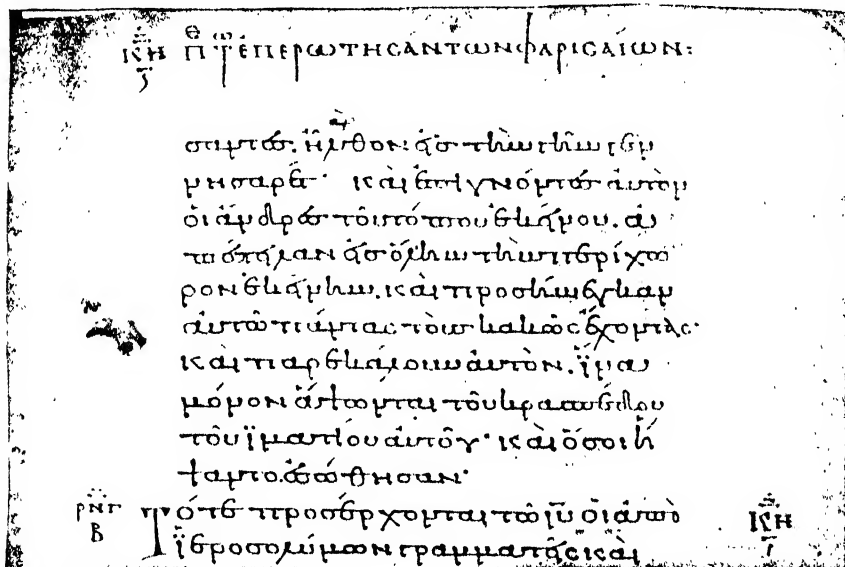 ΚΗ ἘΠΕΡΩΤΗΣΑΝΤΩΝ ΦΑΡΙΣΑΙΩΝ:
σαντες. ἦλθον εἰς τὴν γῆν γεν
νησαρέτ· καὶ ἐπιγνόντες αὐτὸν
οἱ ἄνδρες τοῦ τόπου ἐκείνου. ἀ
πέστειλαν εἰς ὅλην τὴν περίχω
ρον ἐκείνην. καὶ προσήνεγκαν
αὐτῶ πάντας τοὺς κακῶς ἔχοντας·
καὶ παρεκάλουν αὐτὸν. ἵνα
μόνον ἅψωνται τοῦ κρασπέδου
τοῦ ϊματίου αὐτοῦ· καὶ ὅσοι ἥ
ψαντο. ἐσώθησαν·
ρνγ Τότε προσέρχονται τῶ ιυ̅ οἱ ἀπὸ ΚΗ
Β ϊεροσολύμων γραμματεῖς καὶ